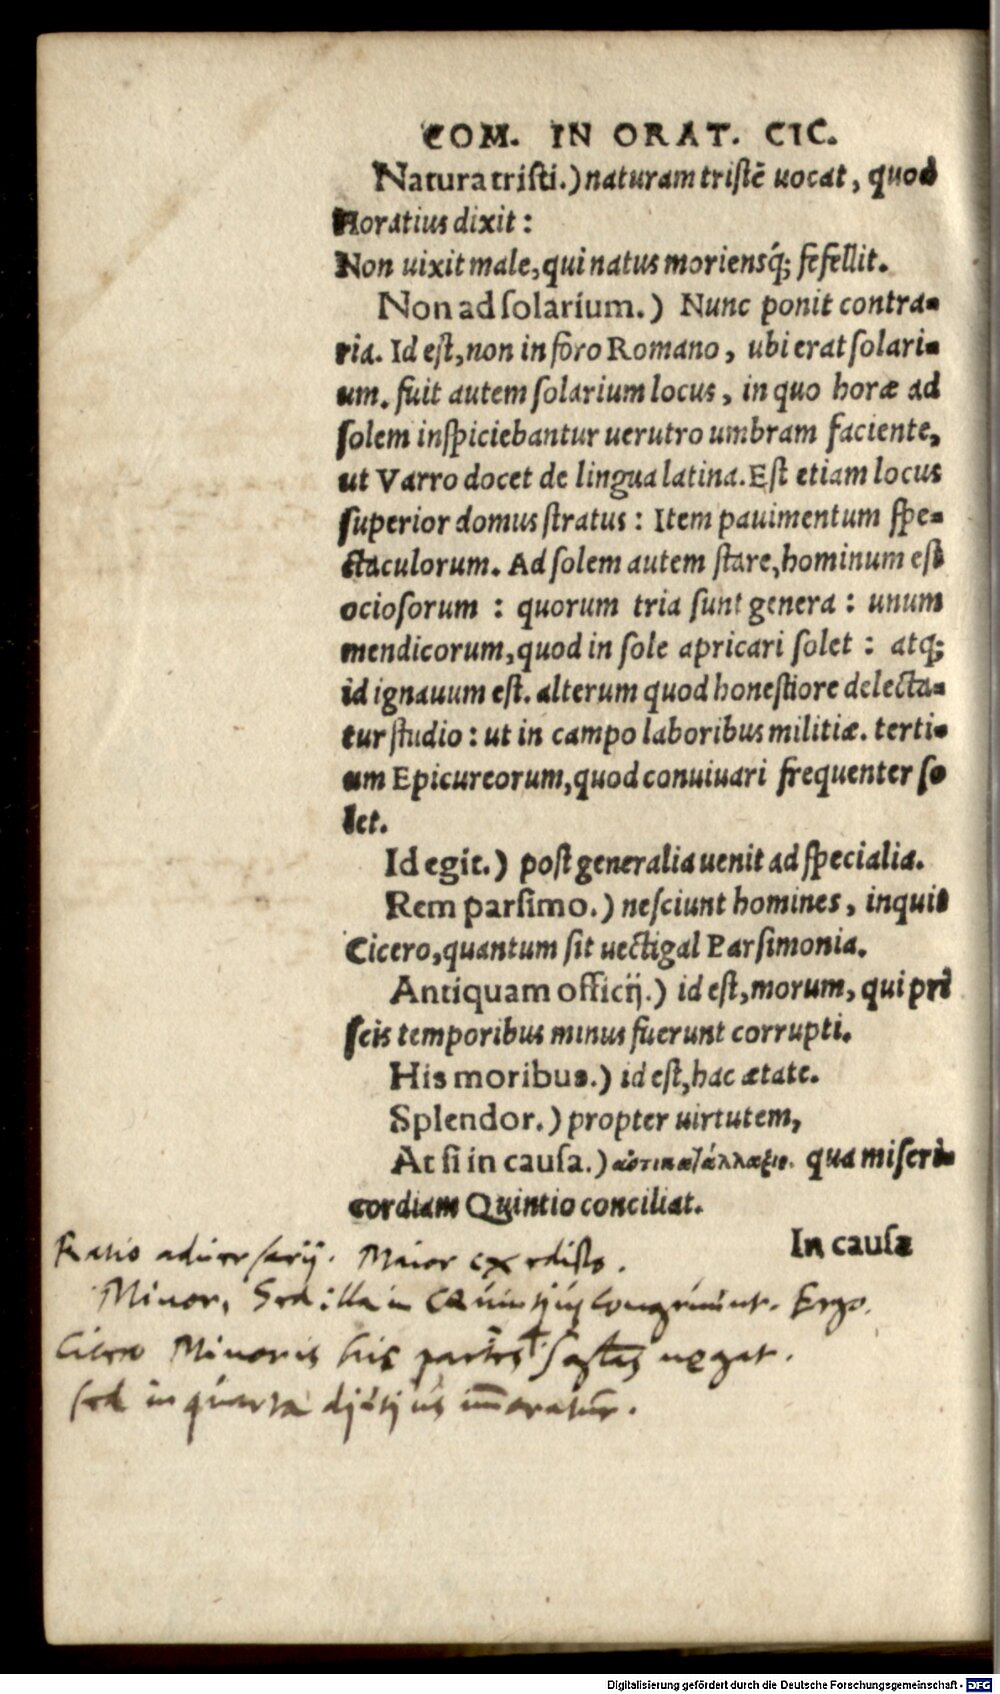 COM. IN ORAT. CIC.
Natura tristi.) naturam tristē uocat, quod
Horatius dixit:
Non uixit male, qui natus moriensq́; fefellit.
Non ad solarium.) Nunc ponit contra-
ria. Id est, non in foro Romano, ubi erat solari-
um. fuit autem solarium locus, in quo horæ ad
solem inspiciebantur uerutro umbram faciente,
ut Varro docet de lingua latina. Est etiam locus
superior domus stratus: Item pauimentum spe-
ctaculorum. Ad solem autem stare, hominum est
ociosorum: quorum tria sunt genera: unum
mendicorum, quod in sole apricari solet: atq;
id ignauum est. alterum quod honestiore delecta-
tur studio: ut in campo laboribus militiæ. terti-
um Epicureorum, quod conuiuari frequenter so
let.
Id egit.) post generalia uenit ad specialia.
Rem parsimo.) nesciunt homines, inquit
Cicero, quantum sit uectigal Parsimonia.
Antiquam officij.) id est, morum, qui pri
scis temporibus minus fuerunt corrupti.
His moribus.) id est, hac ætate.
Splendor.) propter uirtutem,
At si in causa.) qua miseri-
cordiam Quintio conciliat.
In causa
Ratio aduersarij. Maior ex edicto.
Minor, Sed illa in Quintiū congruunt. Ergo.
Cicero Minoris his partes negat.
sed in quarta diutius īmoratur.